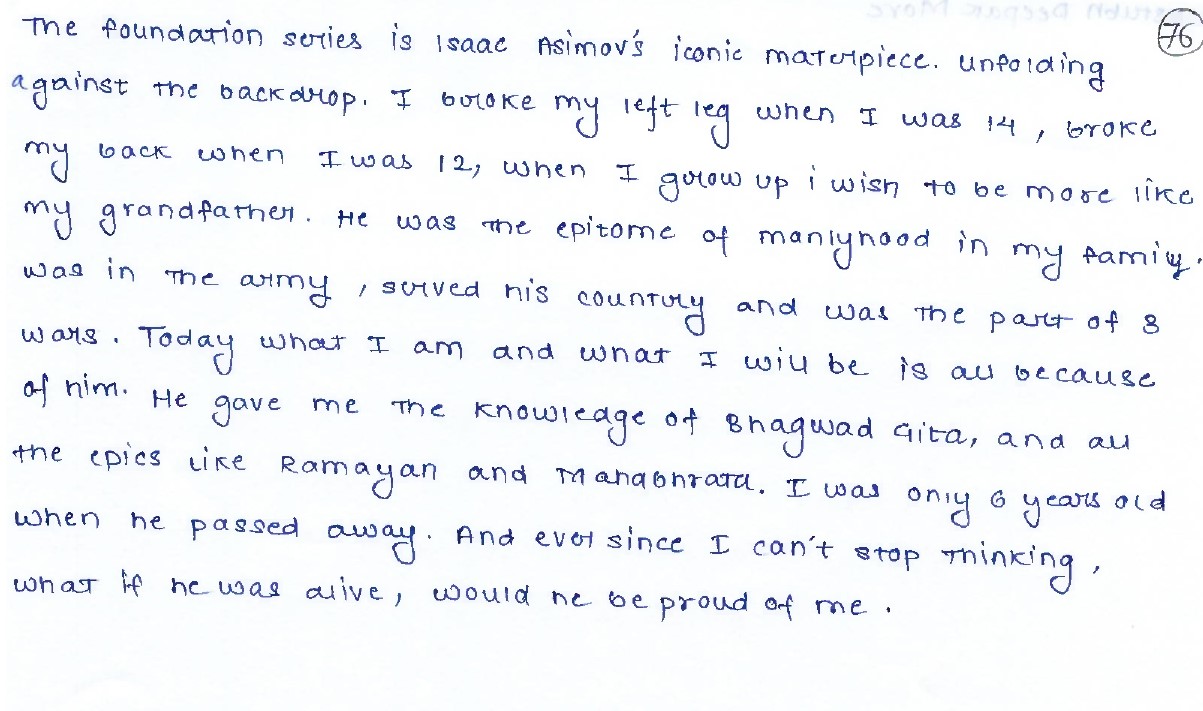 76
The foundation series is Isaac Asimov's iconic materpiece. Unfolding
against the backdrop. I broke my left leg when I was 14, broke
my back when I was 12, when I grow up i wish to be more like
my grandfather. He was the epitome of manlyhood in my family.
was in the army, served his country and was the part of 3
wars. Today what I am and what I will be is all because
of him. He gave me the knowledge of Bhagwad Gita, and all
the epics like Ramayan and Mahabhrata. I was only 6 years old
when he passed away. And ever since I can't stop thinking,
what if he was alive, would he be proud of me.